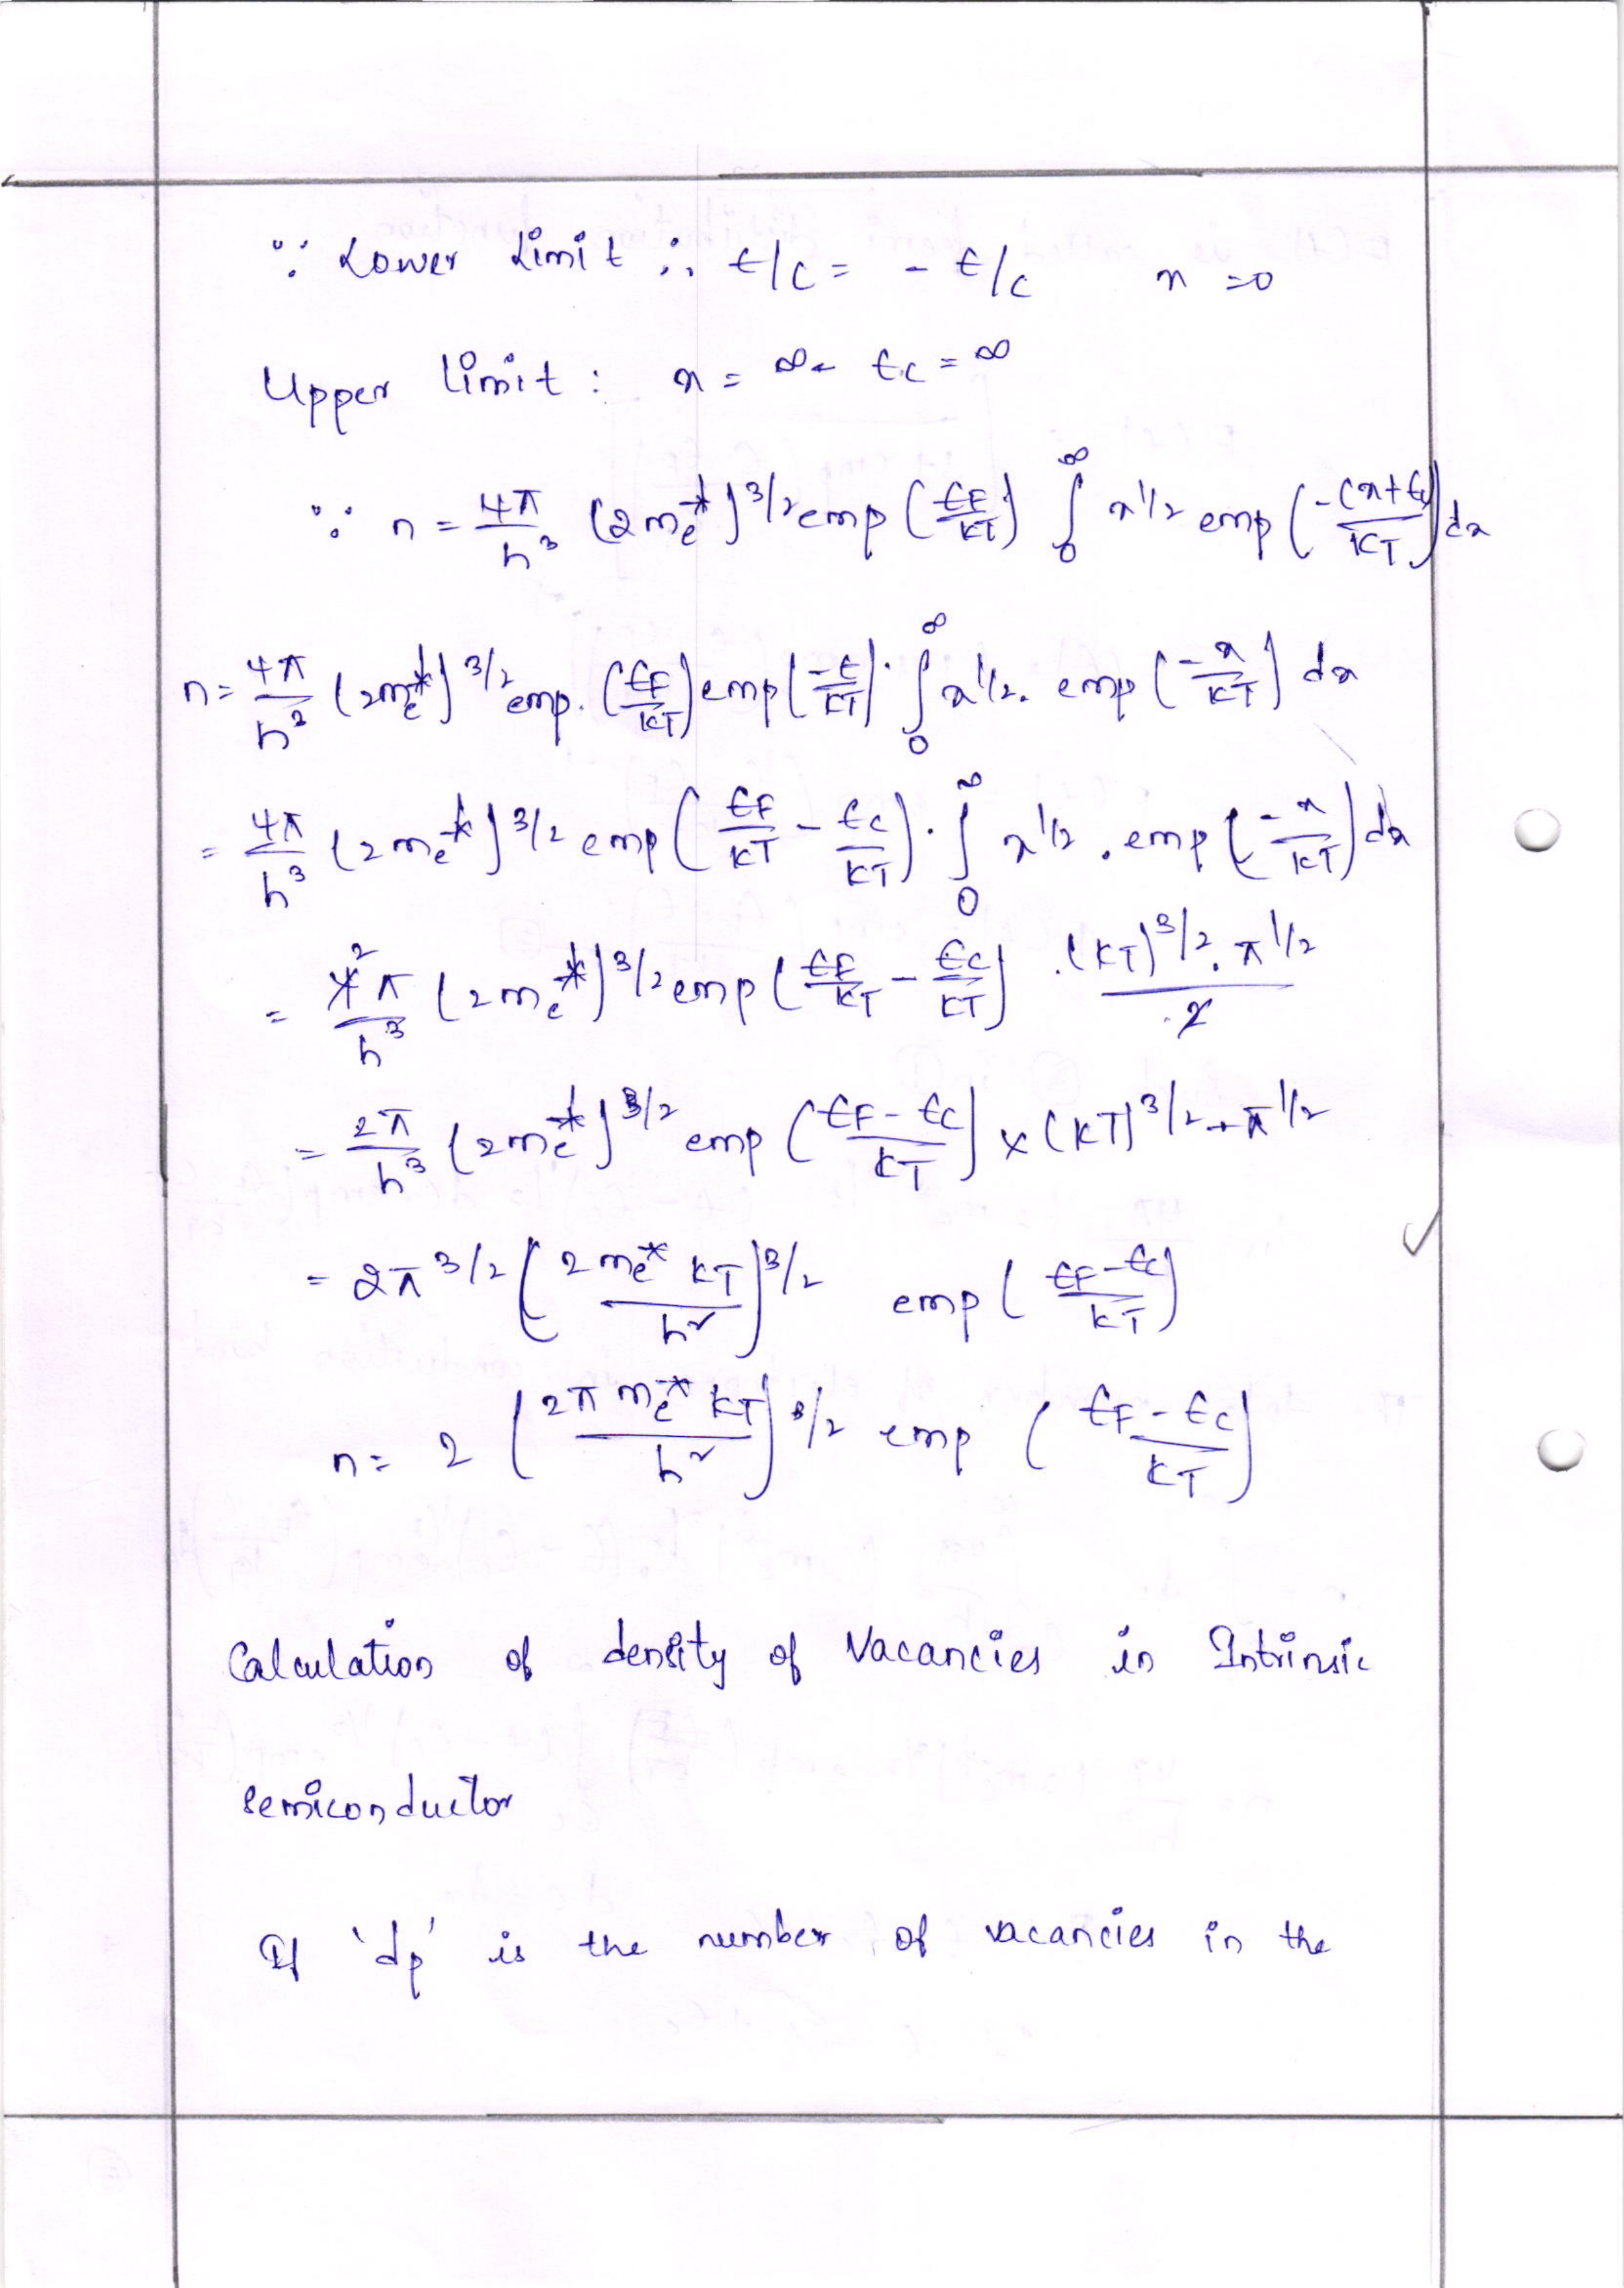 ∵ Lower Limit ∴ E/c = - E/c x = 0
Upper limit : x = ∞ Ec = ∞
∵ n = 4π/h³ (2me*)^3/2 exp (EF/KT) ∫₀^∞ x^1/2 exp (-(x+Ec)/KT) dx
n = 4π/h³ (2me*)^3/2 exp. (EF/KT) exp (-E/KT) . ∫₀^∞ x^1/2 . exp (-x/KT) dx
= 4π/h³ (2me*)^3/2 exp (EF/KT - Ec/KT) . ∫₀^∞ x^1/2 . exp (-x/KT) dx
= 4̸² π/h³ (2me*)^3/2 exp (EF/KT - Ec/KT) . (KT)^3/2 . π^1/2 / 2̸
= 2π/h³ (2me*)^3/2 exp (EF-Ec/KT) x (KT)^3/2 + π^1/2
= 2π^3/2 (2me* KT/h²)^3/2 exp (EF-Ec/KT)
n = 2 (2π me* KT/h²)^3/2 exp (EF-Ec/KT)
Calculation of density of Vacancies in Intrinsic
semiconductor
If 'dp' is the number of vacancies in the